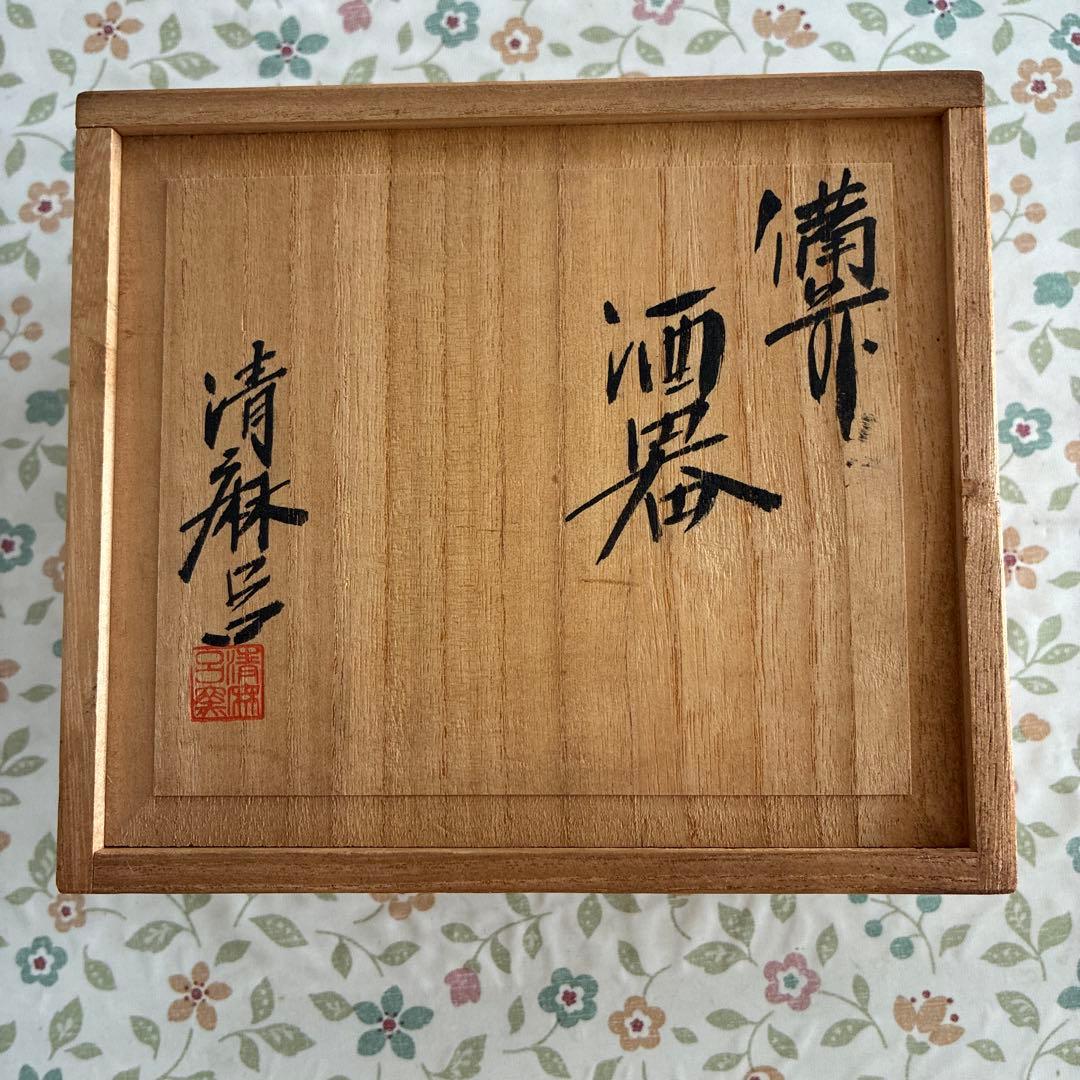 備前
酒器
清麻呂
清麻
呂窯